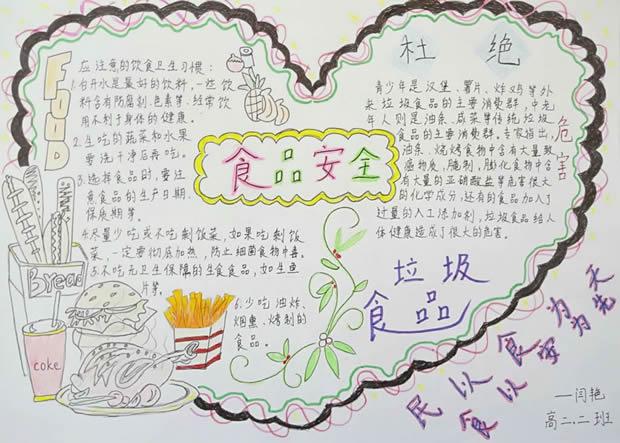 FOOD
应注意的饮食卫生习惯：
1.白开水是最好的饮料，一些饮
料含有防腐剂、色素等，经常饮
用不利于身体的健康。
2.生吃的蔬菜和水果
要洗干净后再吃。
3.选择食品时，要注
意食品的生产日期、
保质期等。
4.尽量少吃或不吃剩饭菜，如果吃剩饭
菜，一定要彻底加热，防止细菌食物中毒。
5.不吃无卫生保障的生食食品，如生鱼
片等。
6.少吃油炸、
烟熏、烤制的
食品。
Bread
coke
食品安全
杜绝
青少年是汉堡、薯片、炸鸡等外
来垃圾食品的主要消费群，中老
年人则是油条、咸菜等传统垃圾
食品的主要消费群。专家指出，
油条、烧烤食物中含有大量致
癌物处，腌制，膨化食物中含
有大量的亚硝酸盐等危害很大
的化学成分，还有的食品加入了
过量的人工添加剂，垃圾食品给人
体健康造成了很大的危害。
危害
垃圾
食品
民以食为天
食以安为先
一闫艳
高二.二班